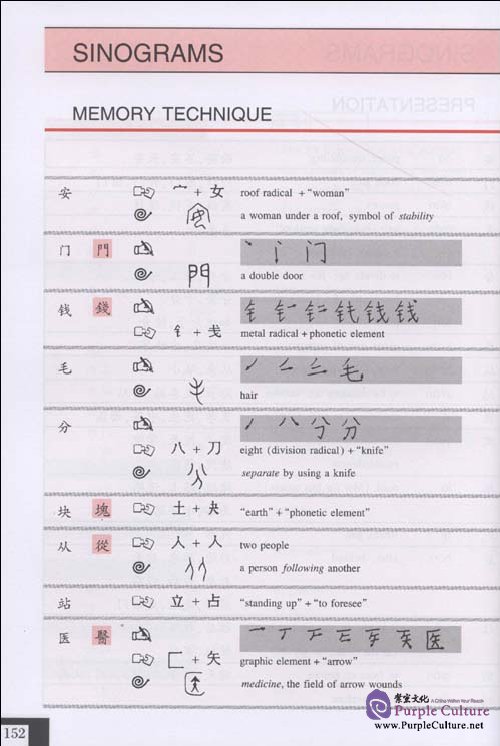 SINOGRAMS
MEMORY TECHNIQUE
安 宀 + 女 roof radical + "woman"
a woman under a roof, symbol of stability
门 門 丶 门
門 a double door
钱 錢
钅 + 戋 metal radical + phonetic element
毛 毛
hair
分 八 分
八 + 刀 eight (division radical) + "knife"
separate by using a knife
块 塊 土 + 夬 "earth" + "phonetic element"
从 從 人 + 人 two people
a person following another
站 立 + 占 "standing up" + "to foresee"
医 醫 一 医
匚 + 矢 graphic element + "arrow"
medicine, the field of arrow wounds
152
紫宣文化 A China Within Your Reach
Purple Culture
www.PurpleCulture.net